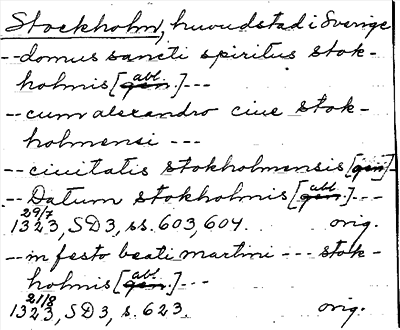 Stockholm, huvudstad i Sverige
-- domus sancti spiritus stok-
holmis [abl. gen.] ---
-- cum alexandro ciue stok-
holmensi ---
-- ciuitatis stokholmensis [gen] -
-- Datum stokholmis [abl. gen.] ---
29/7
1323, SD3, ss. 603, 604. orig.
-- in festo beati martini --- stok-
holmis [abl. gen.] ---
21/8
1323, SD3, s. 623. orig.